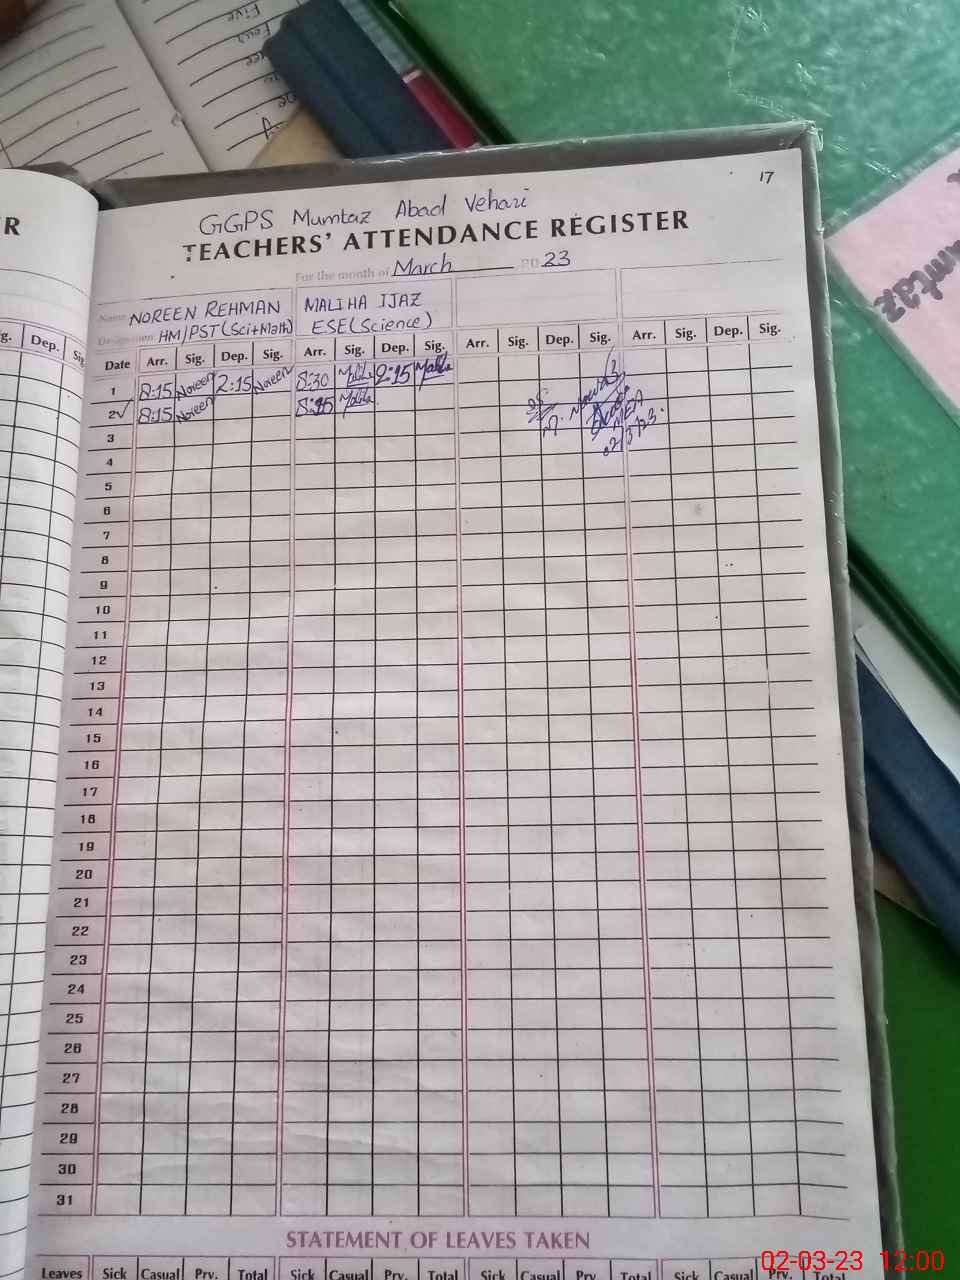 Five
Four
17
R
GGPS Mumtaz Abad Vehari
TEACHERS' ATTENDANCE REGISTER
For the month of March 23
Name NOREEN REHMAN MALIHA IJAZ
Designation HM/PST (Sci+Math) ESE (Science)
g. Dep. Sig.
Date Arr. Sig. Dep. Sig. Arr. Sig. Dep. Sig. Arr. Sig. Dep. Sig. Arr. Sig. Dep. Sig.
1 8:15 Noreen 2:15 Noreen 8:30 Maliha 2:15 Maliha
2 ✓ 8:15 Noreen Maliha
M. Nawaz
MEA
02/3/23
3
4
5
6
7
8
9
10
11
12
13
14
15
16
17
18
19
20
21
22
23
24
25
26
27
28
29
30
31
STATEMENT OF LEAVES TAKEN
Leaves Sick Casual Prv. Total Sick Casual Prv. Total Sick Casual Prv. Total Sick Casual Prv. Total
mtaz
02-03-23 12:00